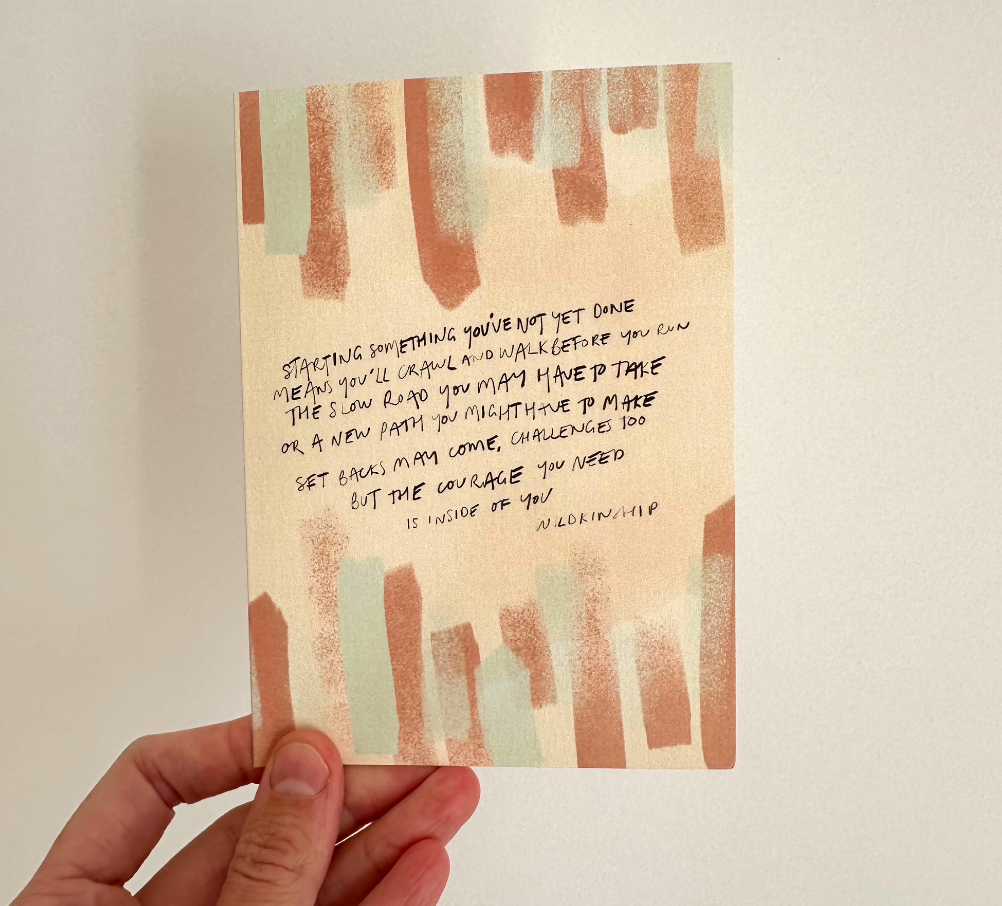 STARTING SOMETHING YOU'VE NOT YET DONE
MEANS YOU'LL CRAWL AND WALK BEFORE YOU RUN
THE SLOW ROAD YOU MAY HAVE TO TAKE
OR A NEW PATH YOU MIGHT HAVE TO MAKE
SET BACKS MAY COME, CHALLENGES TOO
BUT THE COURAGE YOU NEED
IS INSIDE OF YOU
WILDKINSHIP